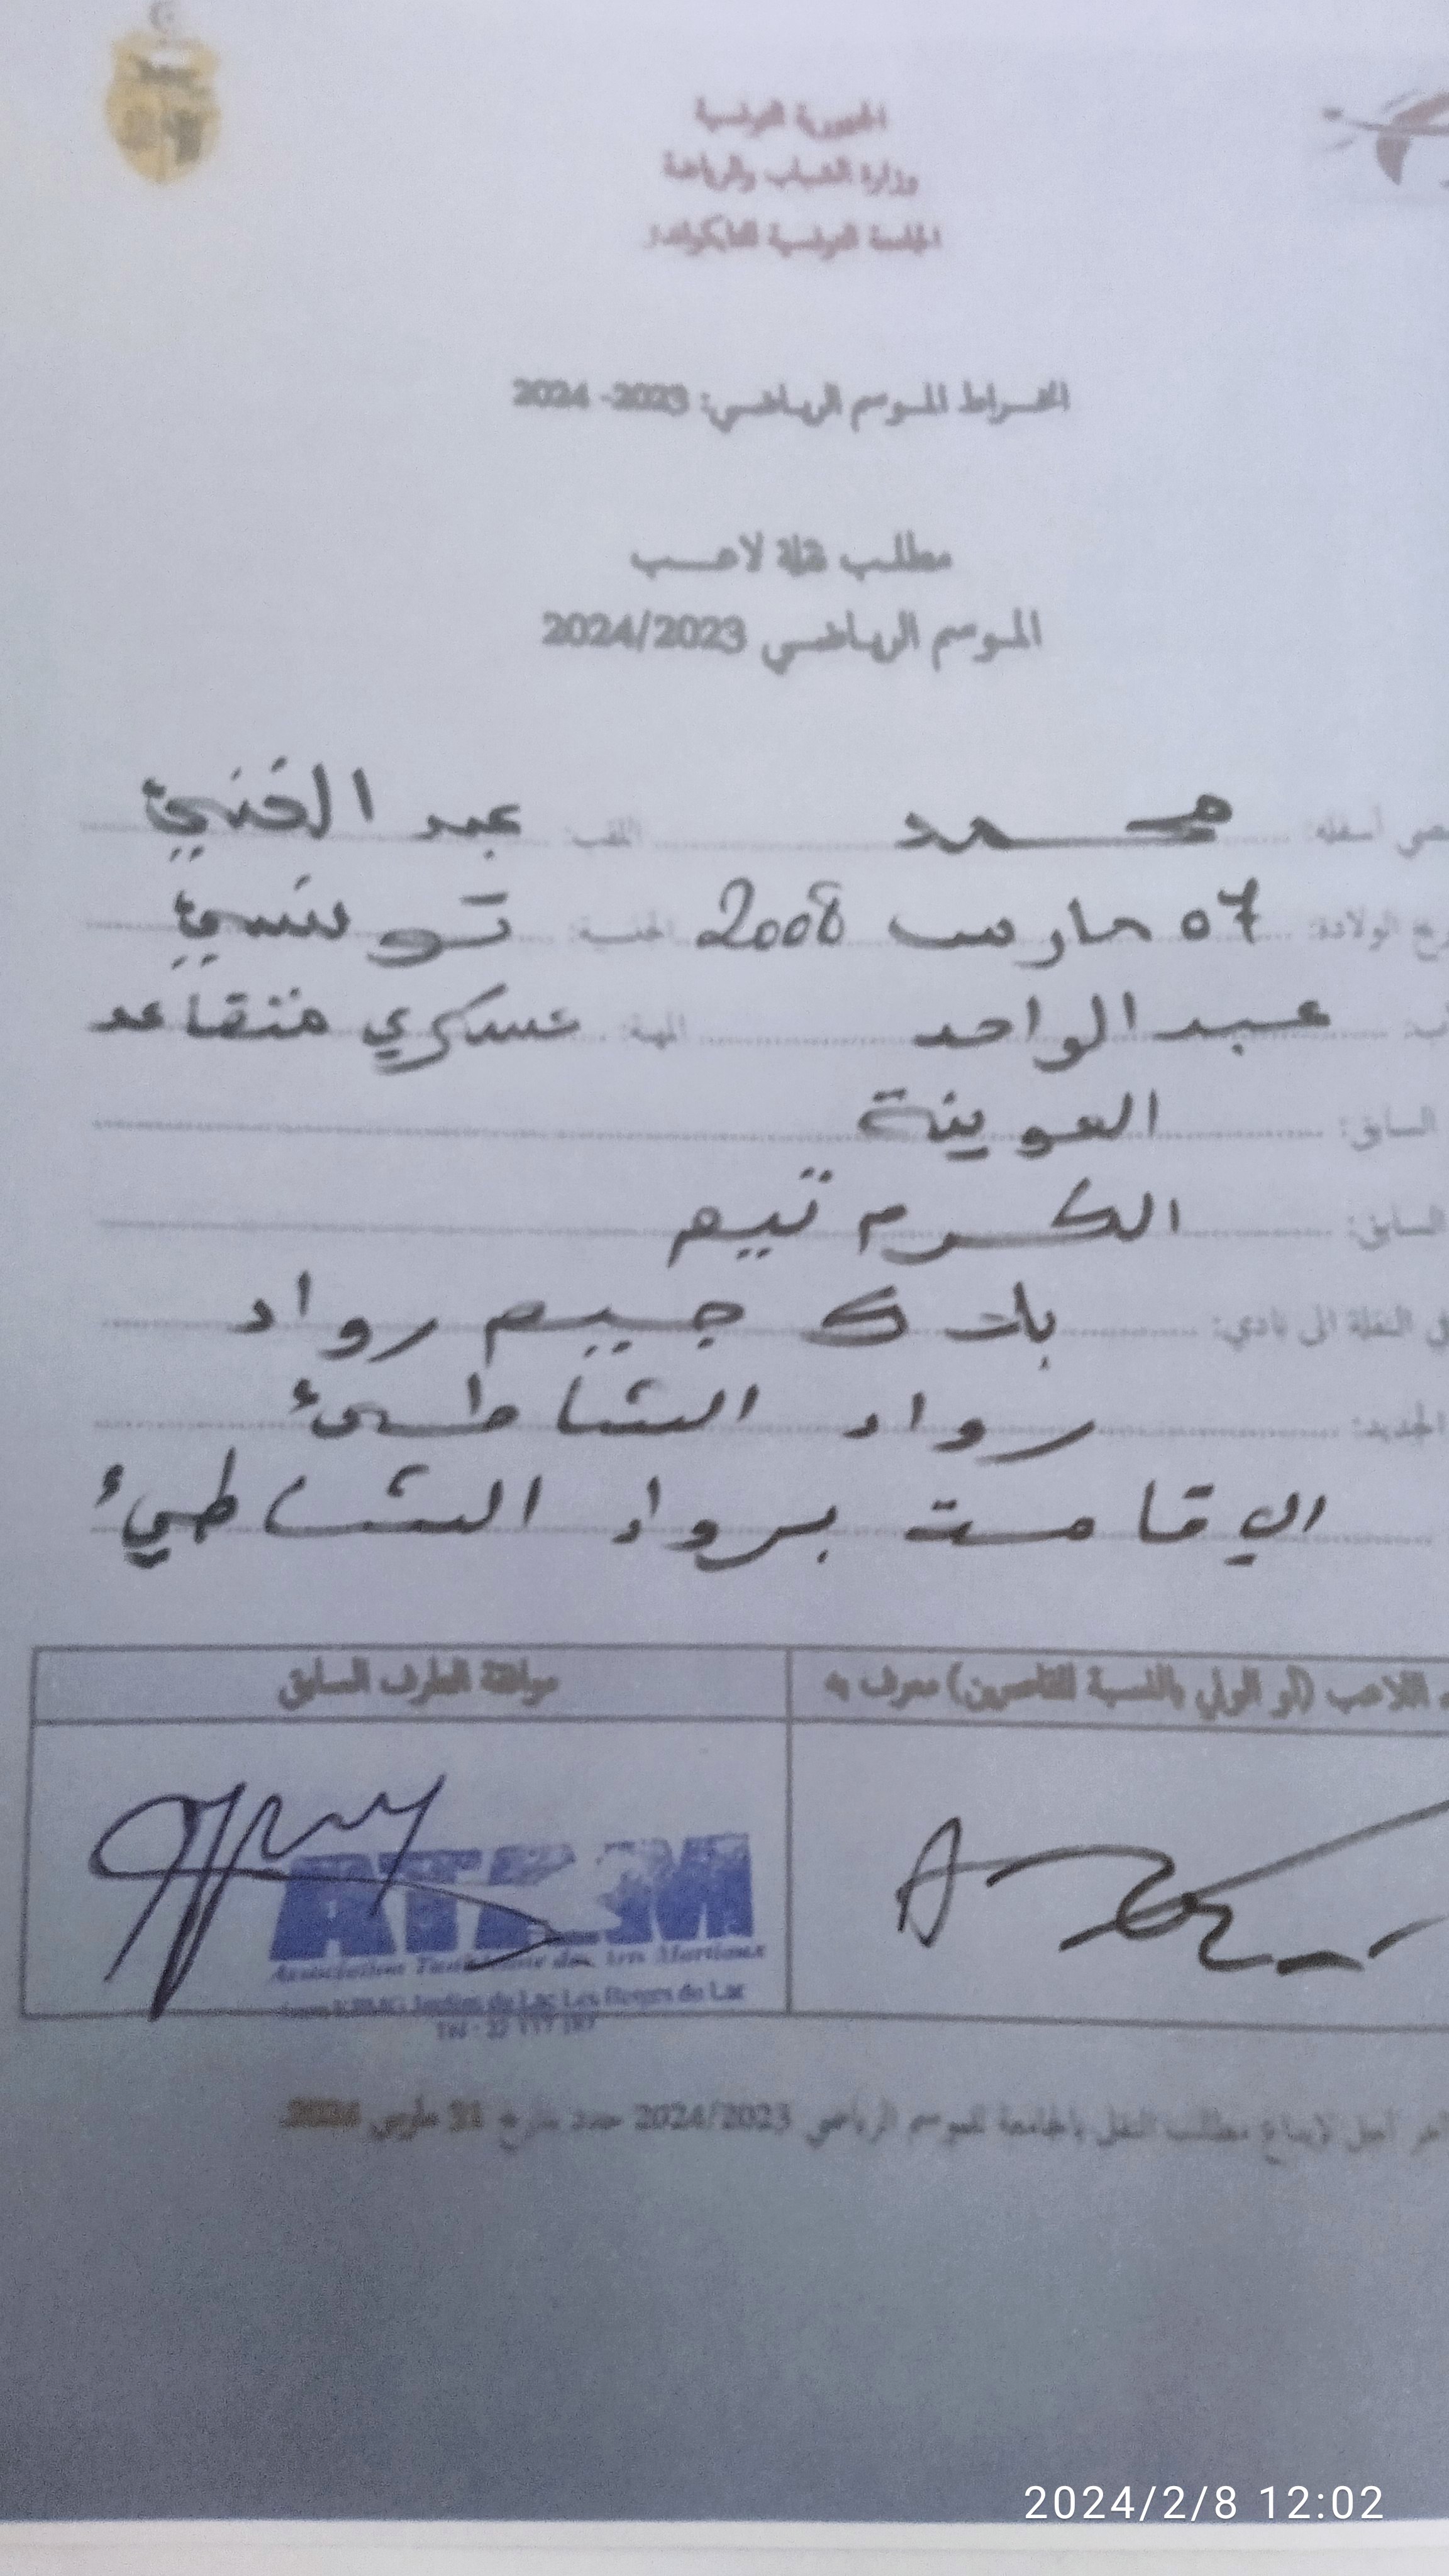 الجمهورية التونسية
وزارة الشباب والرياضة
الجامعة التونسية للتايكواندو
انخراط الموسم الرياضي: 2023- 2024
مطلب نقلة لاعب
الموسم الرياضي 2024/2023
أسفله: محمد اللقب: عبد الغني
الولادة: 07 مارس 2008 الجنسية: تونسي
عبد الواحد المهنة: عسكري متقاعد
السابق: العوينة
السابق: الكرم تيم
النقلة الى نادي: بلاك جيم رواد
الجديد: رواد الشاطئ
الإقامة برواد الشاطئ
اللاعب (أو الولي بالنسبة للقاصرين) معرف به
موافقة الطرف السابق
ATAM
Association Tunisienne des Arts Martiaux
Jardins du Lac Les Berges du Lac
أجل لإيداع مطالب النقل بالجامعة للموسم الرياضي 2024/2023 حدد بتاريخ 31 مارس 2024.
2024/2/8 12:02